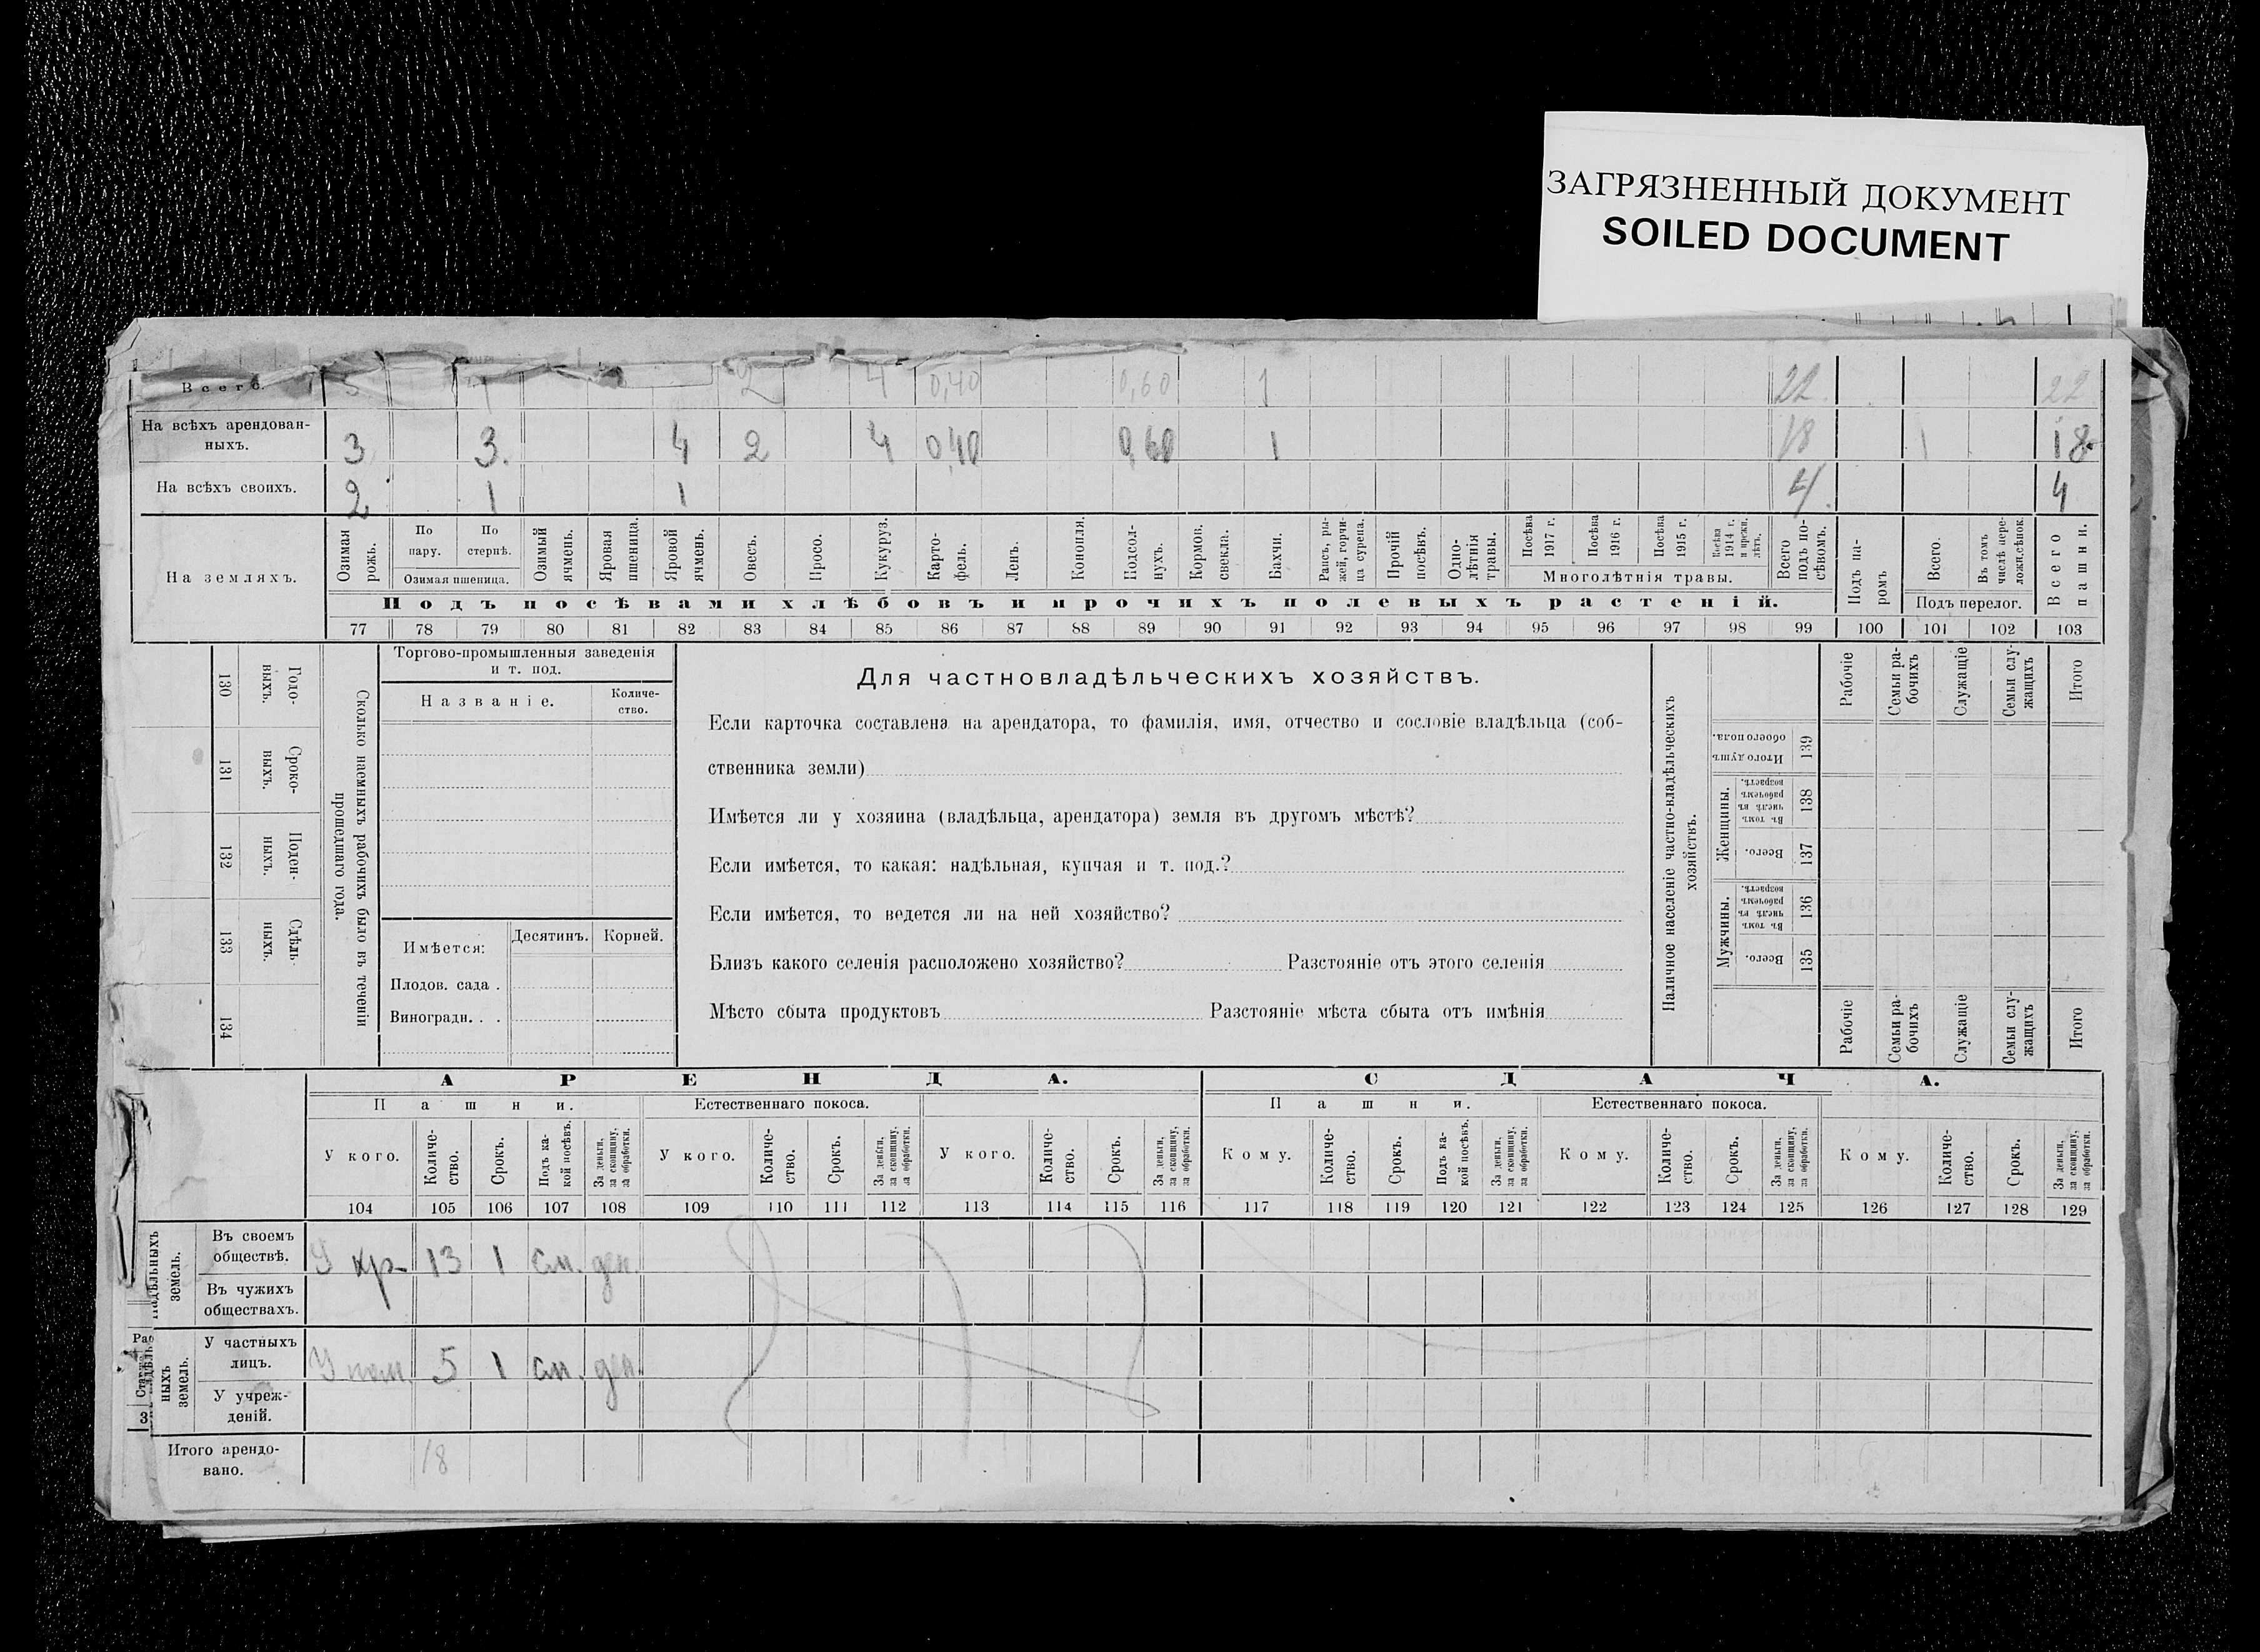 ЗАГРЯЗНЕННЫЙ ДОКУМЕНТ
SOILED DOCUMENT
Всего. 5 2 4 0,40 0,60 1 22 22
На всѣхъ арендован-
ныхъ. 3 3 4 2 4 0,40 0,60 1 18 1 18
На всѣхъ своихъ. 2 1 1 4 4
На земляхъ.
Озимая рожь.
По пару.
По стернѣ.
Озимая пшеница.
Озимый ячмень.
Яровая пшеница.
Яровой ячмень.
Овесъ.
Просо.
Кукуруз.
Карто-
фель.
Ленъ.
Конопля.
Подсол-
нухъ.
Кормов. свекла.
Бахчи.
Рапсъ, ры-
жей, горчи-
ца сурепа.
Прочій посѣвъ.
Одно-
лѣтнія травы.
Посѣва 1917 г.
Посѣва 1916 г.
Посѣва 1915 г.
Посѣва 1914 г. и прежн. лѣтъ.
Многолѣтнія травы.
Всего подъ по-
сѣвомъ.
Подъ па-
ромъ
Всего.
Въ томъ числѣ пере-
ложн.сѣнок.
Подъ перелог.
Всего пашни.
Подъ посѣвами хлѣбовъ и прочихъ полевыхъ растеній.
77 78 79 80 81 82 83 84 85 86 87 88 89 90 91 92 93 94 95 96 97 98 99 100 101 102 103
130 Годо-
выхъ.
131 Сроко-
выхъ.
132 Поден-
ныхъ.
133 Сдѣль-
ныхъ.
134
Сколько наемныхъ рабочихъ было въ теченіи
прошедшаго года.
Торгово-промышленныя заведенія
и т. под.
Названіе.
Количе-
ство.
Имѣется:
Десятинъ. Корней.
Плодов. сада .
Виноградн. . .
Для частновладѣльческихъ хозяйствъ.
Если карточка составлена на арендатора, то фамилія, имя, отчество и сословіе владѣльца (соб-
ственника земли)
Имѣется ли у хозяина (владѣльца, арендатора) земля въ другомъ мѣстѣ?
Если имѣется, то какая: надѣльная, купчая и т. под.?
Если имѣется, то ведется ли на ней хозяйство?
Близъ какого селенія расположено хозяйство? Разстояніе отъ этого селенія
Мѣсто сбыта продуктовъ Разстояніе мѣста сбыта отъ имѣнія
Наличное населеніе частно-владѣльческихъ
хозяйствъ.
Рабочіе
Семьи ра-
бочихъ
Служащіе
Семьи слу-
жащихъ
Итого
Итого душъ обоего пола. 139
Женщины.
Въ томъ числѣ въ рабочемъ возрастѣ. 138
Всего. 137
Мужчины.
Въ томъ числѣ въ рабочемъ возрастѣ. 136
Всего. 135
Рабочіе
Семьи ра-
бочихъ
Служащіе
Семьи слу-
жащихъ
Итого
АРЕНДА. СДАЧА.
Пашни. Естественнаго покоса. Пашни. Естественнаго покоса.
У кого. Количе-
ство. Срокъ. Подъ ка-
кой посѣвъ. За деньги, за скопщину, за обработки.
У кого. Количе-
ство. Срокъ. За деньги, за скопщину, за обработки.
У кого. Количе-
ство. Срокъ. За деньги, за скопщину, за обработки.
Кому. Количе-
ство. Срокъ. Подъ ка-
кой посѣвъ. За деньги, за скопщину, за обработки.
Кому. Количе-
ство. Срокъ. За деньги, за скопщину, за обработки.
Кому. Количе-
ство. Срокъ. За деньги, за скопщину, за обработки.
104 105 106 107 108 109 110 111 112 113 114 115 116 117 118 119 120 121 122 123 124 125 126 127 128 129
земель.
Въ своемъ
обществѣ. У кр. 13 1 см. ден.
Въ чужихъ
обществахъ.
ныхъ
земель.
У частныхъ
лицъ. У пом. 5 1 см. ден.
У учреж-
деній.
Итого арендо-
вано. 18